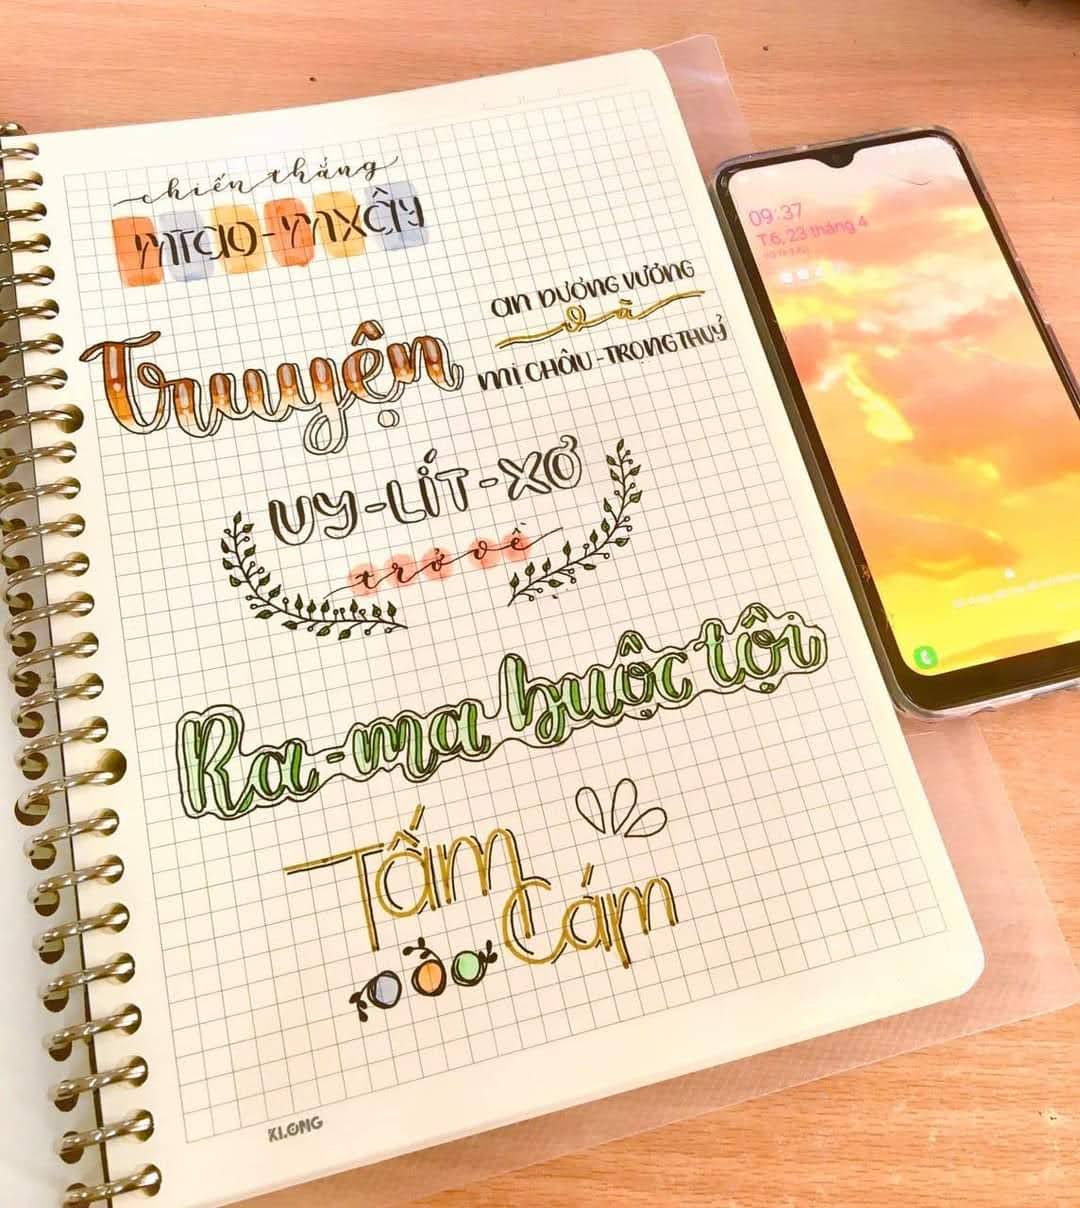 chiến thắng
MTAO-MXÂY
Truyện
AN DƯƠNG VƯƠNG
và
MỊ CHÂU - TRỌNG THUỶ
UY-LÍT-XƠ
trở về
Ra-ma buộc tội
Tấm
Cám
KLONG
09:37
T.6, 23 tháng 4